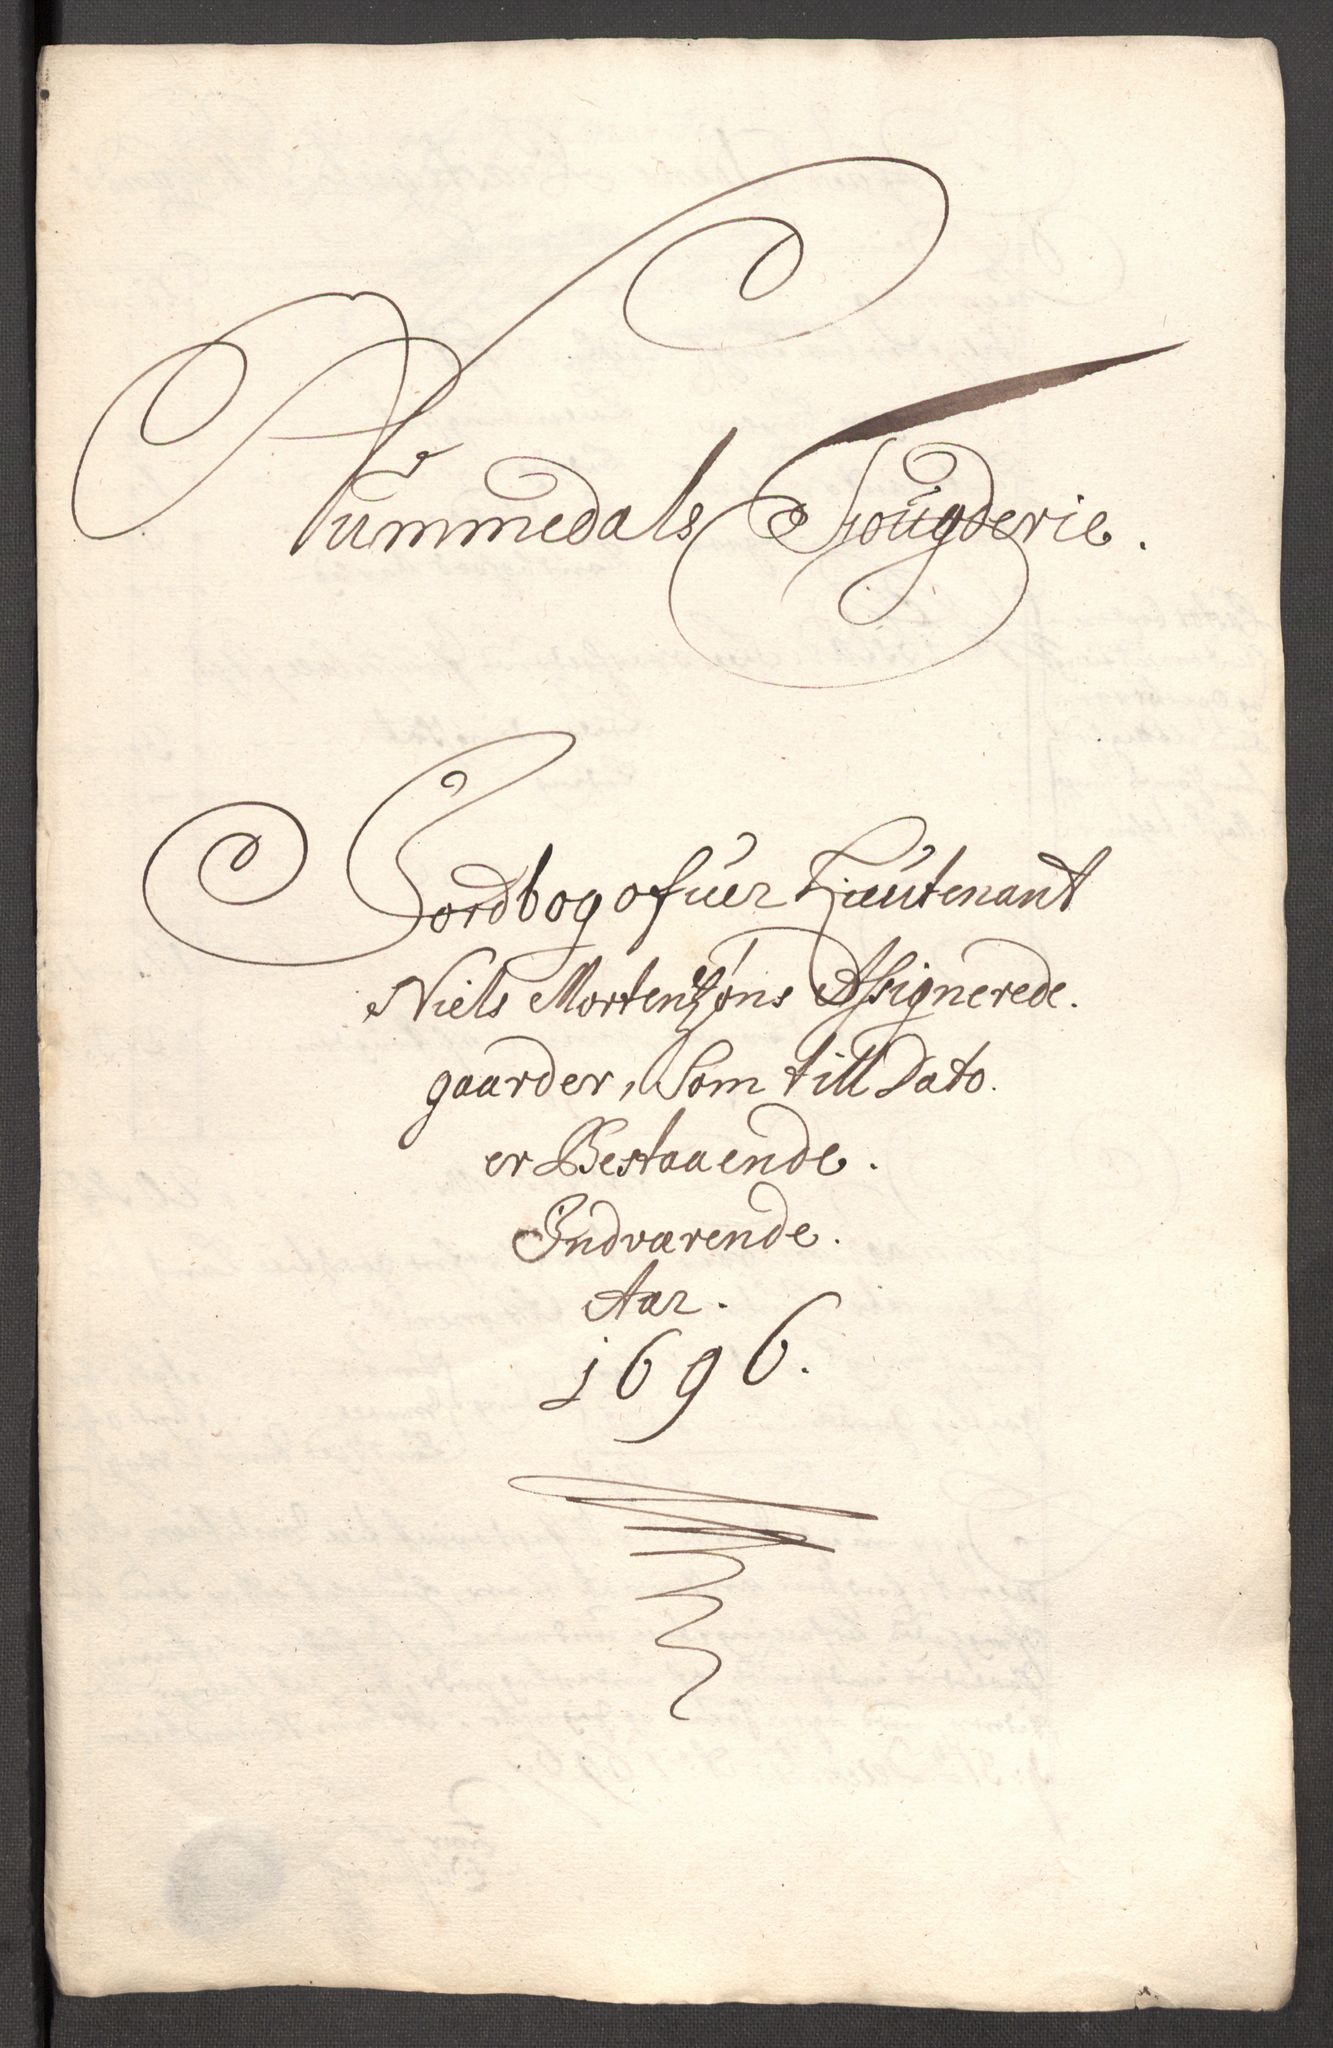 Nummedals Fougderie.
Jordbog ofuer Lieutenant
Niels Mortenßøns Assignerede.
gaarder, Som till Dato.
er Bestaaende.
Indværende.
Aar.
1696.